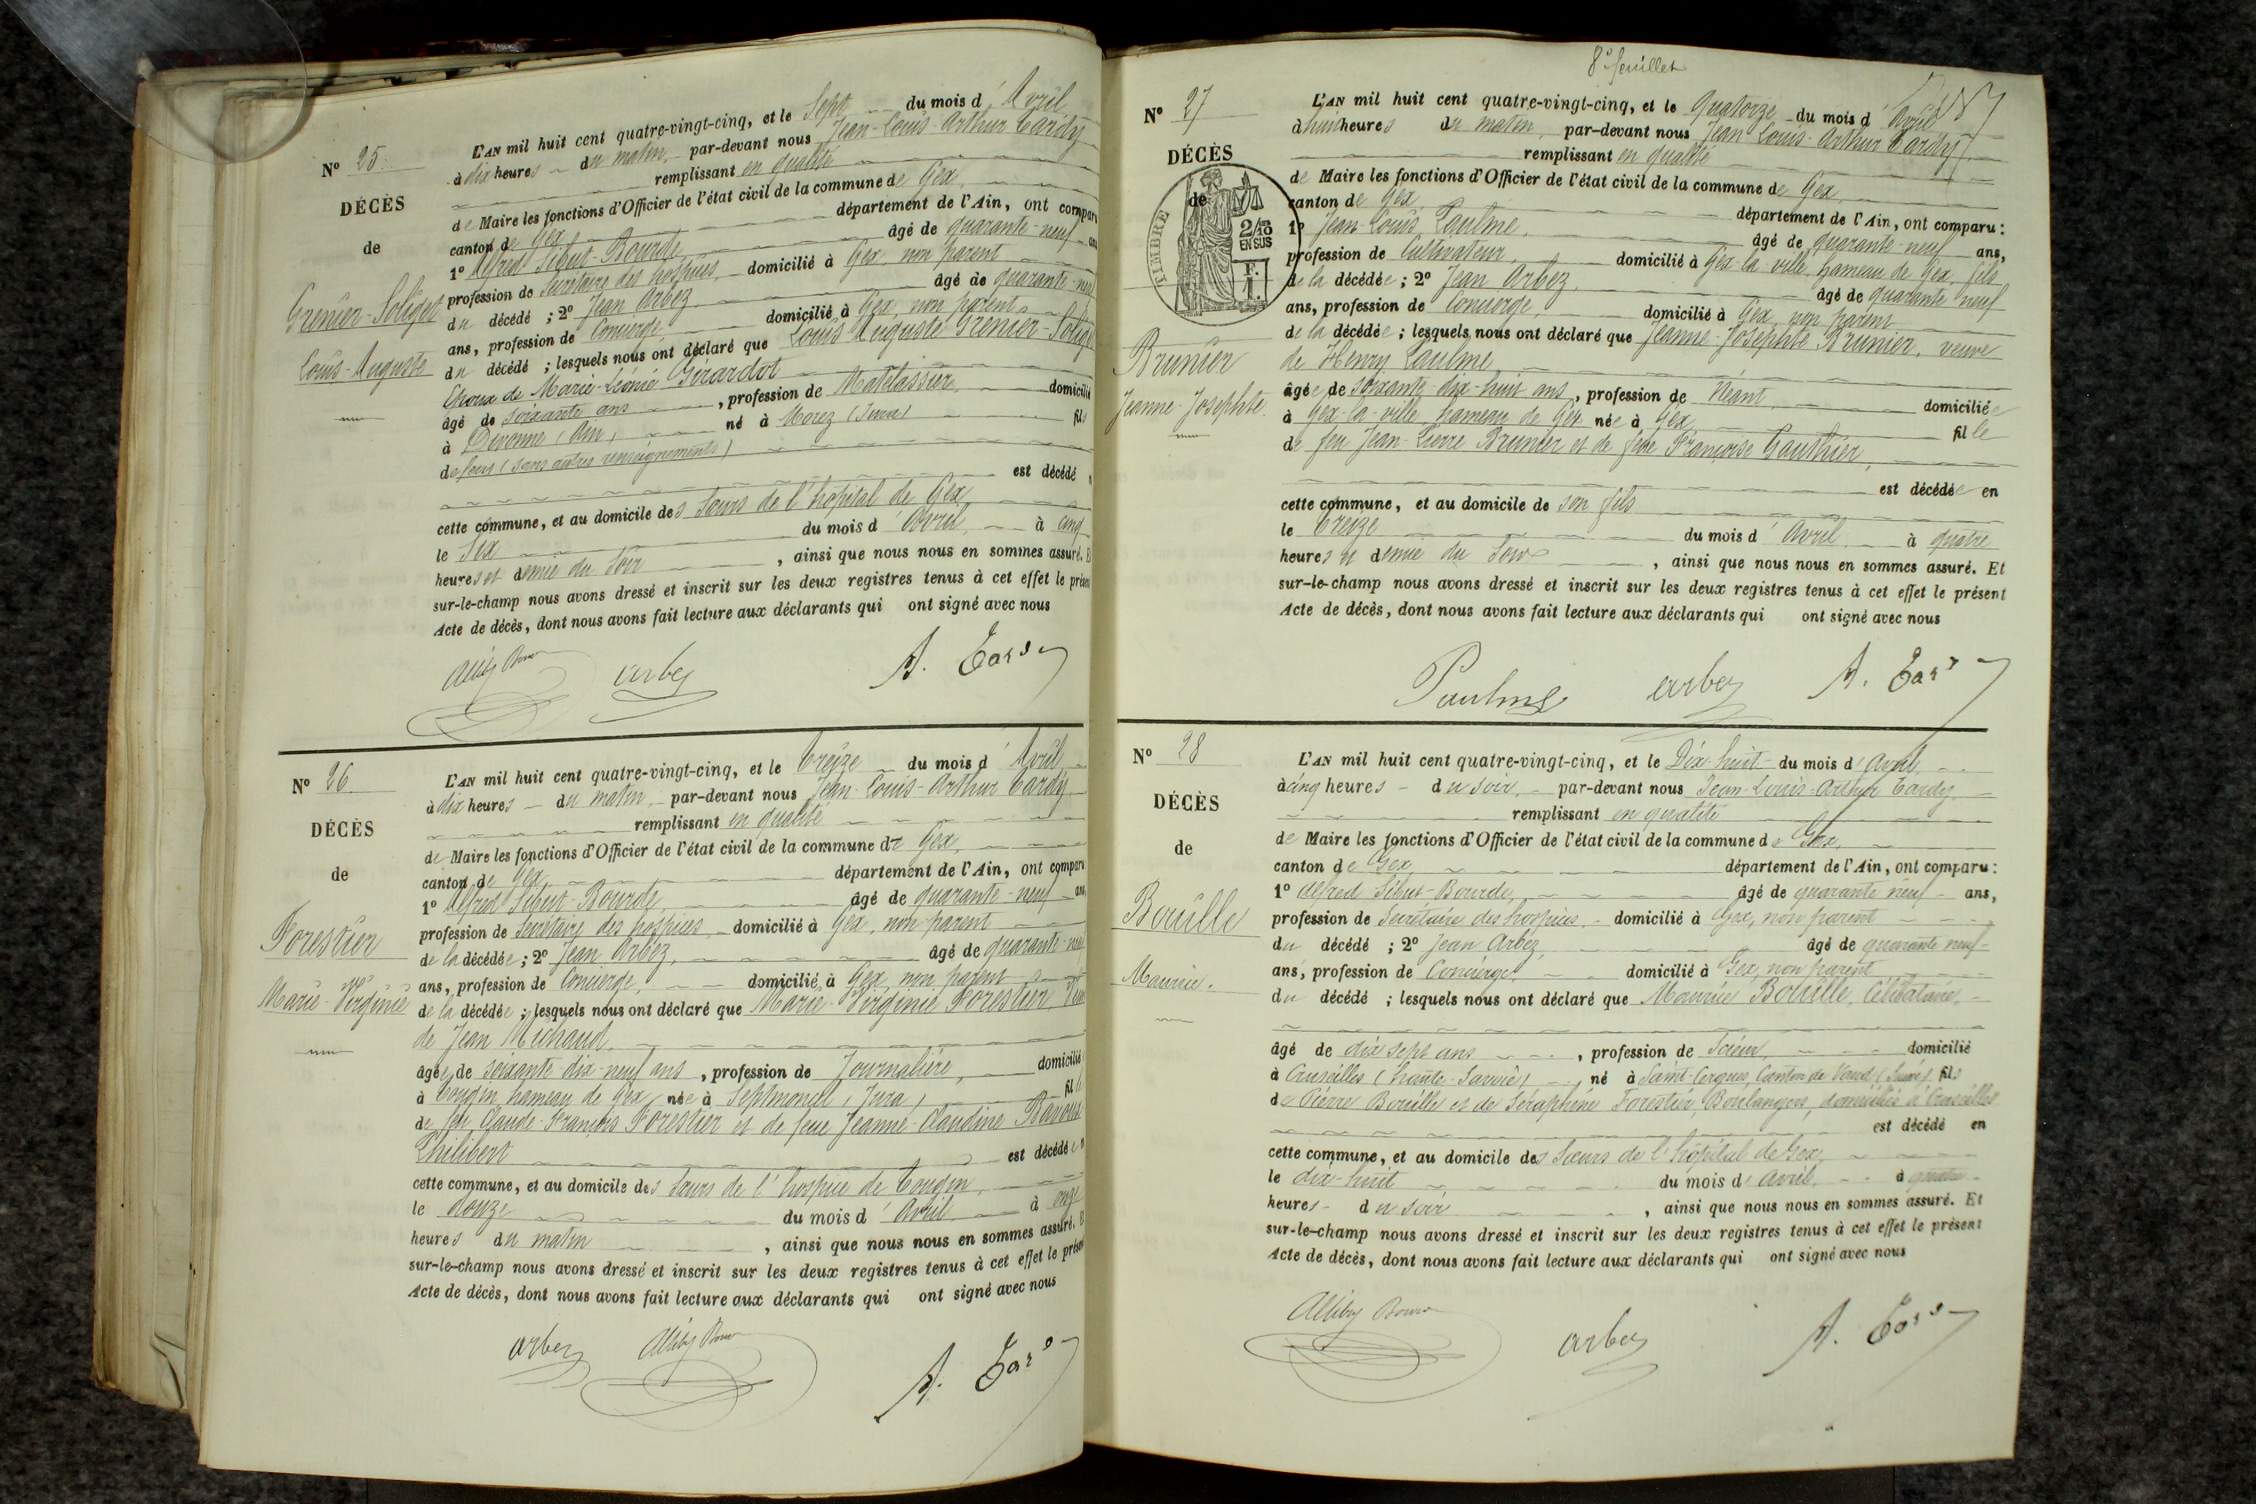 Nº 25
DÉCÈS
de
Grenier-Soliget
Louis-Auguste
L'AN mil huit cent quatre-vingt-cinq, et le Sept du mois d'Avril
à dix heures du matin, par-devant nous Jean-Louis-Arthur Tardy
remplissant en qualité
de Maire les fonctions d'Officier de l'état civil de la commune de Gex,
canton de Gex département de l'Ain, ont comparu
1º Alfred Sibut-Bourde, âgé de quarante-neuf ans
profession de Secrétaire des hospices, domicilié à Gex, non parent
du décédé ; 2º Jean Arbez âgé de quarante-neuf
ans, profession de Concierge, domicilié à Gex, non parent
du décédé ; lesquels nous ont déclaré que Louis Auguste Grenier-Soliget
Epoux de Marie-Léonie Girardot
âgé de soixante ans, profession de Matelassier, domicilié
à Divonne (Ain), né à Morez (Jura) fils
de feus (sans autres renseignements)
est décédé
cette commune, et au domicile des Sœurs de l'hôpital de Gex,
le Six du mois d'Avril à cinq
heures et demie du Soir, ainsi que nous nous en sommes assuré. E
sur-le-champ nous avons dressé et inscrit sur les deux registres tenus à cet effet le présen
Acte de décès, dont nous avons fait lecture aux déclarants qui ont signé avec nous
arbez A. Tardy
Nº 26.
DÉCÈS
de
Forestier
Marie-Virginie
L'AN mil huit cent quatre-vingt-cinq, et le Treize du mois d'Avril
à dix heures du matin, par-devant nous Jean-Louis-Arthur Tardy
remplissant en qualité
de Maire les fonctions d'Officier de l'état civil de la commune de Gex,
canton de Gex département de l'Ain, ont comparu
1º Alfred Sibut-Bourde, âgé de quarante-neuf ans
profession de Secrétaire des hospices, domicilié à Gex, non parent
de la décédée ; 2º Jean Arbez, âgé de quarante-neuf
ans, profession de Concierge, domicilié à Gex, non parent
de la décédée ; lesquels nous ont déclaré que Marie-Virginie Forestier,
de Jean Michaud,
âgée de soixante-dix-neuf ans, profession de Journalière, domicilié
à Tougin hameau de Gex, née à Septmoncel (Jura) fil
de feu Claude-François Forestier et de feue Jeanne-Claudine
Philibert est décédée
cette commune, et au domicile des Sœurs de l'hospice de Tougin,
le douze du mois d'Avril à onze
heures du matin, ainsi que nous nous en sommes assuré. E
sur-le-champ nous avons dressé et inscrit sur les deux registres tenus à cet effet le présen
Acte de décès, dont nous avons fait lecture aux déclarants qui ont signé avec nous
arbez A. Tardy
8e feuillet
Nº 27
DÉCÈS
de
TIMBRE
2/10
EN SUS
Brunier
Jeanne-Josephte.
L'AN mil huit cent quatre-vingt-cinq, et le Quatorze du mois d'Avril
à huit heures du matin, par-devant nous Jean-Louis-Arthur Tardy
remplissant en qualité
de Maire les fonctions d'Officier de l'état civil de la commune de Gex,
canton de Gex, département de l'Ain, ont comparu :
1º Jean-Louis Paulme, âgé de quarante-neuf ans,
profession de Cultivateur, domicilié à Gex-la-ville, hameau de Gex, fils
de la décédée ; 2º Jean Arbez, âgé de quarante-neuf
ans, profession de Concierge, domicilié à Gex, non parent
de la décédée ; lesquels nous ont déclaré que Jeanne-Josephte Brunier, veuve
de Henry Paulme
âgée de soixante-dix-huit ans, profession de Néant, domiciliée
à Gex-la-ville hameau de Gex née à Gex, fille
de feu Jean-Pierre Brunier et de feue Françoise Gauthier,
est décédée en
cette commune, et au domicile de son fils
le Treize du mois d'Avril à quatre
heures et demie du Soir, ainsi que nous nous en sommes assuré. Et
sur-le-champ nous avons dressé et inscrit sur les deux registres tenus à cet effet le présent
Acte de décès, dont nous avons fait lecture aux déclarants qui ont signé avec nous
Paulme arbez A. Tardy
Nº 28
DÉCÈS
de
Bouille
Maurice.
L'AN mil huit cent quatre-vingt-cinq, et le Dix-huit du mois d'Avril,
à cinq heures du soir, par-devant nous Jean-Louis-Arthur Tardy,
remplissant en qualité
de Maire les fonctions d'Officier de l'état civil de la commune de Gex,
canton de Gex département de l'Ain, ont comparu :
1º Alfred Sibut-Bourde, âgé de quarante-neuf ans,
profession de Secrétaire des hospices, domicilié à Gex, non parent
du décédé ; 2º Jean Arbez, âgé de quarante neuf
ans, profession de Concierge, domicilié à Gex, non parent
du décédé ; lesquels nous ont déclaré que Maurice Bouille, Célibataire,
âgé de dix sept ans, profession de Scieur, domicilié
à Cruseilles (haute-Savoie), né à Saint-Cergues, Canton de Vaud (Suisse) fils
de Pierre Bouille et de Séraphine Forestier, Boulangers, domiciliés à Cruseilles
est décédé en
cette commune, et au domicile des Sœurs de l'hôpital de Gex,
le dix-huit du mois d'Avril, à quatre
heures du soir, ainsi que nous nous en sommes assuré. Et
sur-le-champ nous avons dressé et inscrit sur les deux registres tenus à cet effet le présent
Acte de décès, dont nous avons fait lecture aux déclarants qui ont signé avec nous
arbez A. Tardy